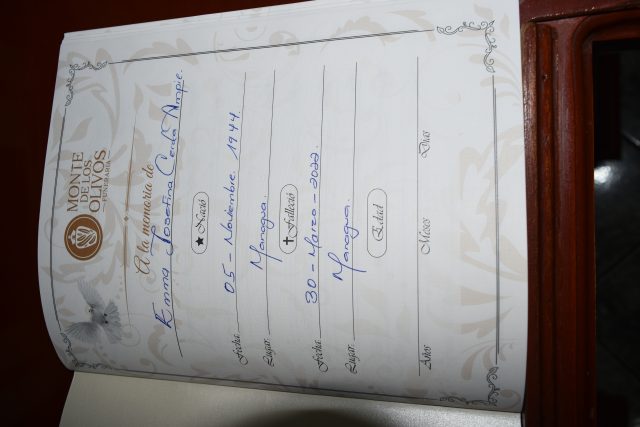 MONTE
DE LOS
OLIVOS
FUNERARIA
A la memoria de
Emma Josefina Cerda Ampie.
Nació
Fecha: 05 - Noviembre. 1944.
Lugar: Managua.
Falleció
Fecha: 30 - Marzo - 2022.
Lugar: Managua.
Edad
Años Meses Días